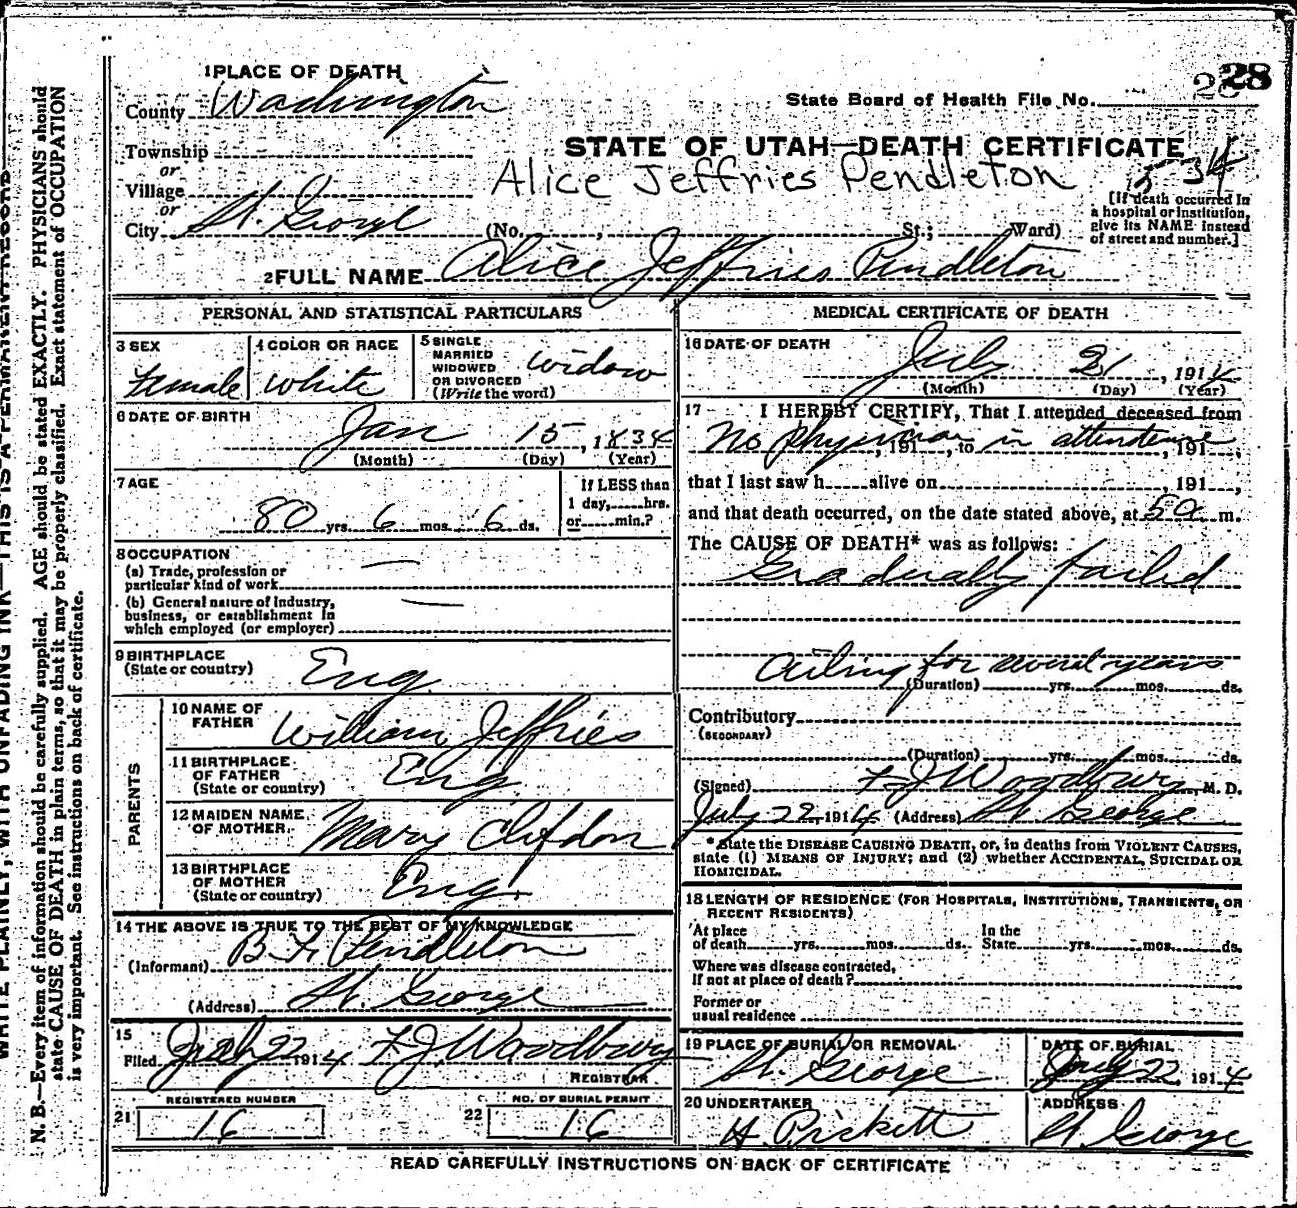 1 PLACE OF DEATH
County Washington
Township
or
Village
or
City St. George
228
State Board of Health File No.
STATE OF UTAH—DEATH CERTIFICATE
Alice Jeffries Pendleton
534
[If death occurred in
a hospital or institution,
give its NAME instead
of street and number.]
(No. , St.; Ward)
2 FULL NAME Alice Jeffries Pendleton
PERSONAL AND STATISTICAL PARTICULARS
3 SEX
Female
4 COLOR OR RACE
White
5 SINGLE
MARRIED
WIDOWED
OR DIVORCED
(Write the word)
Widow
6 DATE OF BIRTH
Jan 15, 1834
(Month) (Day) (Year)
7 AGE
80 yrs. 6 mos. 6 ds.
If LESS than
1 day, hrs.
or min.?
8 OCCUPATION
(a) Trade, profession or
particular kind of work
(b) General nature of industry,
business, or establishment in
which employed (or employer)
9 BIRTHPLACE
(State or country)
Eng.
PARENTS
10 NAME OF
FATHER
William Jeffries
11 BIRTHPLACE
OF FATHER
(State or country)
Eng
12 MAIDEN NAME
OF MOTHER
Mary Clifdon
13 BIRTHPLACE
OF MOTHER
(State or country)
Eng.
14 THE ABOVE IS TRUE TO THE BEST OF MY KNOWLEDGE
(Informant) B. F. Pendleton
(Address) St. George
15
Filed July 22 1914 F. J. Woodbury
REGISTRAR
REGISTERED NUMBER
21 16
NO. OF BURIAL PERMIT
22 16
MEDICAL CERTIFICATE OF DEATH
16 DATE OF DEATH
July 21, 1914
(Month) (Day) (Year)
17 I HEREBY CERTIFY, That I attended deceased from
No physician, 191 , to in attendence, 191 ,
that I last saw h alive on , 191 ,
and that death occurred, on the date stated above, at 5 a m.
The CAUSE OF DEATH* was as follows:
Gradually failed
Ailing for several years
(Duration) yrs. mos. ds.
Contributory
(SECONDARY)
(Duration) yrs. mos. ds.
(Signed) F J Woodbury, M. D.
July 22, 1914 (Address) St George
*State the DISEASE CAUSING DEATH, or, in deaths from VIOLENT CAUSES,
state (1) MEANS OF INJURY; and (2) whether ACCIDENTAL, SUICIDAL OR
HOMICIDAL.
18 LENGTH OF RESIDENCE (FOR HOSPITALS, INSTITUTIONS, TRANSIENTS, OR
RECENT RESIDENTS)
At place In the
of death yrs. mos. ds. State yrs. mos. ds.
Where was disease contracted,
if not at place of death?
Former or
usual residence
19 PLACE OF BURIAL OR REMOVAL
St. George
DATE OF BURIAL
July 22 1914
20 UNDERTAKER
H. Pickett
ADDRESS
St George
READ CAREFULLY INSTRUCTIONS ON BACK OF CERTIFICATE
WRITE PLAINLY, WITH UNFADING INK—THIS IS A PERMANENT RECORD
N. B.—Every item of information should be carefully supplied. AGE should be stated EXACTLY. PHYSICIANS should
state CAUSE OF DEATH in plain terms, so that it may be properly classified. Exact statement of OCCUPATION
is very important. See instructions on back of certificate.